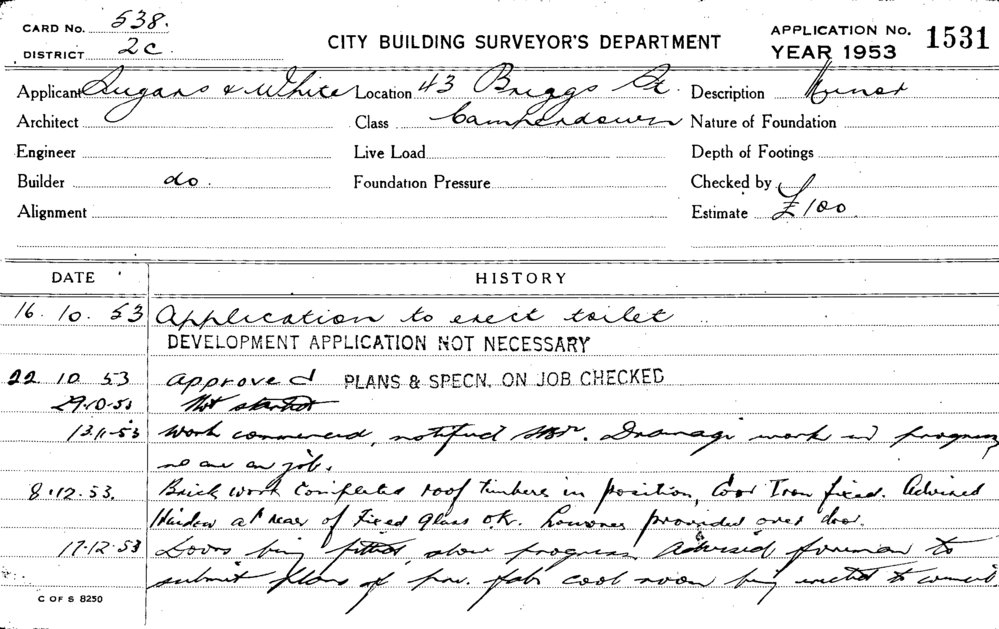 CARD No. 538.
DISTRICT 2C.
CITY BUILDING SURVEYOR'S DEPARTMENT
APPLICATION No. 1531
YEAR 1953
Applicant & White Location 43 Briggs St. Description Minor
Architect Class Camperdown Nature of Foundation
Engineer Live Load Depth of Footings
Builder do. Foundation Pressure Checked by
Alignment Estimate £100
DATE HISTORY
16. 10. 53 Application to erect toilet
DEVELOPMENT APPLICATION NOT NECESSARY
22 10 53 Approved PLANS & SPECN. ON JOB CHECKED
29.10.53 Not started
13.11.53 Work commenced, notified Drainage work in progress
no one on job.
8.12.53. Brick work completed roof timbers in position, Iron fixed. Advised
Window at rear of fixed glass O.K. provided over door.
17.12.53 Doors being fitted, slow progress. Advised foreman to
submit plans of pre. fab cool room being erected to council.
C OF S 8250